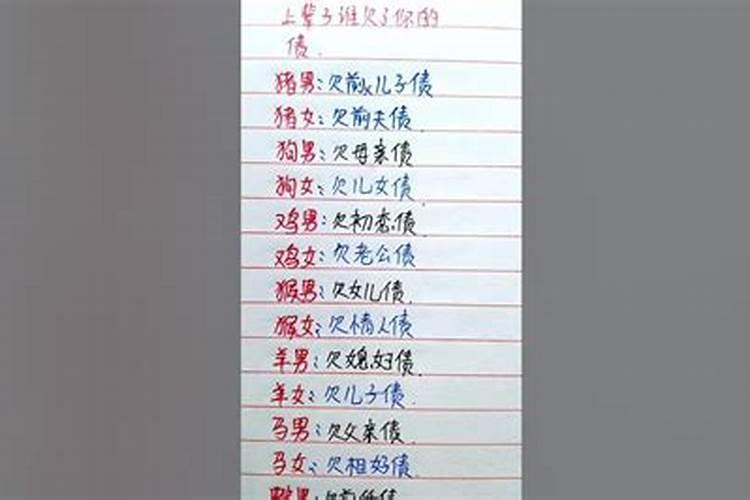 上辈子谁欠了你的
债.
猪男:欠前x儿子债
猪女:欠前夫债.
狗男:欠母亲债
狗女:欠儿女债
鸡男:欠初恋债.
鸡女:欠老公债
猴男:欠女儿债.
猴女:欠情人债
羊男:欠媳妇债.
羊女:欠儿子债.
马男:欠父亲债.
马女:欠相好债.
男:欠前债